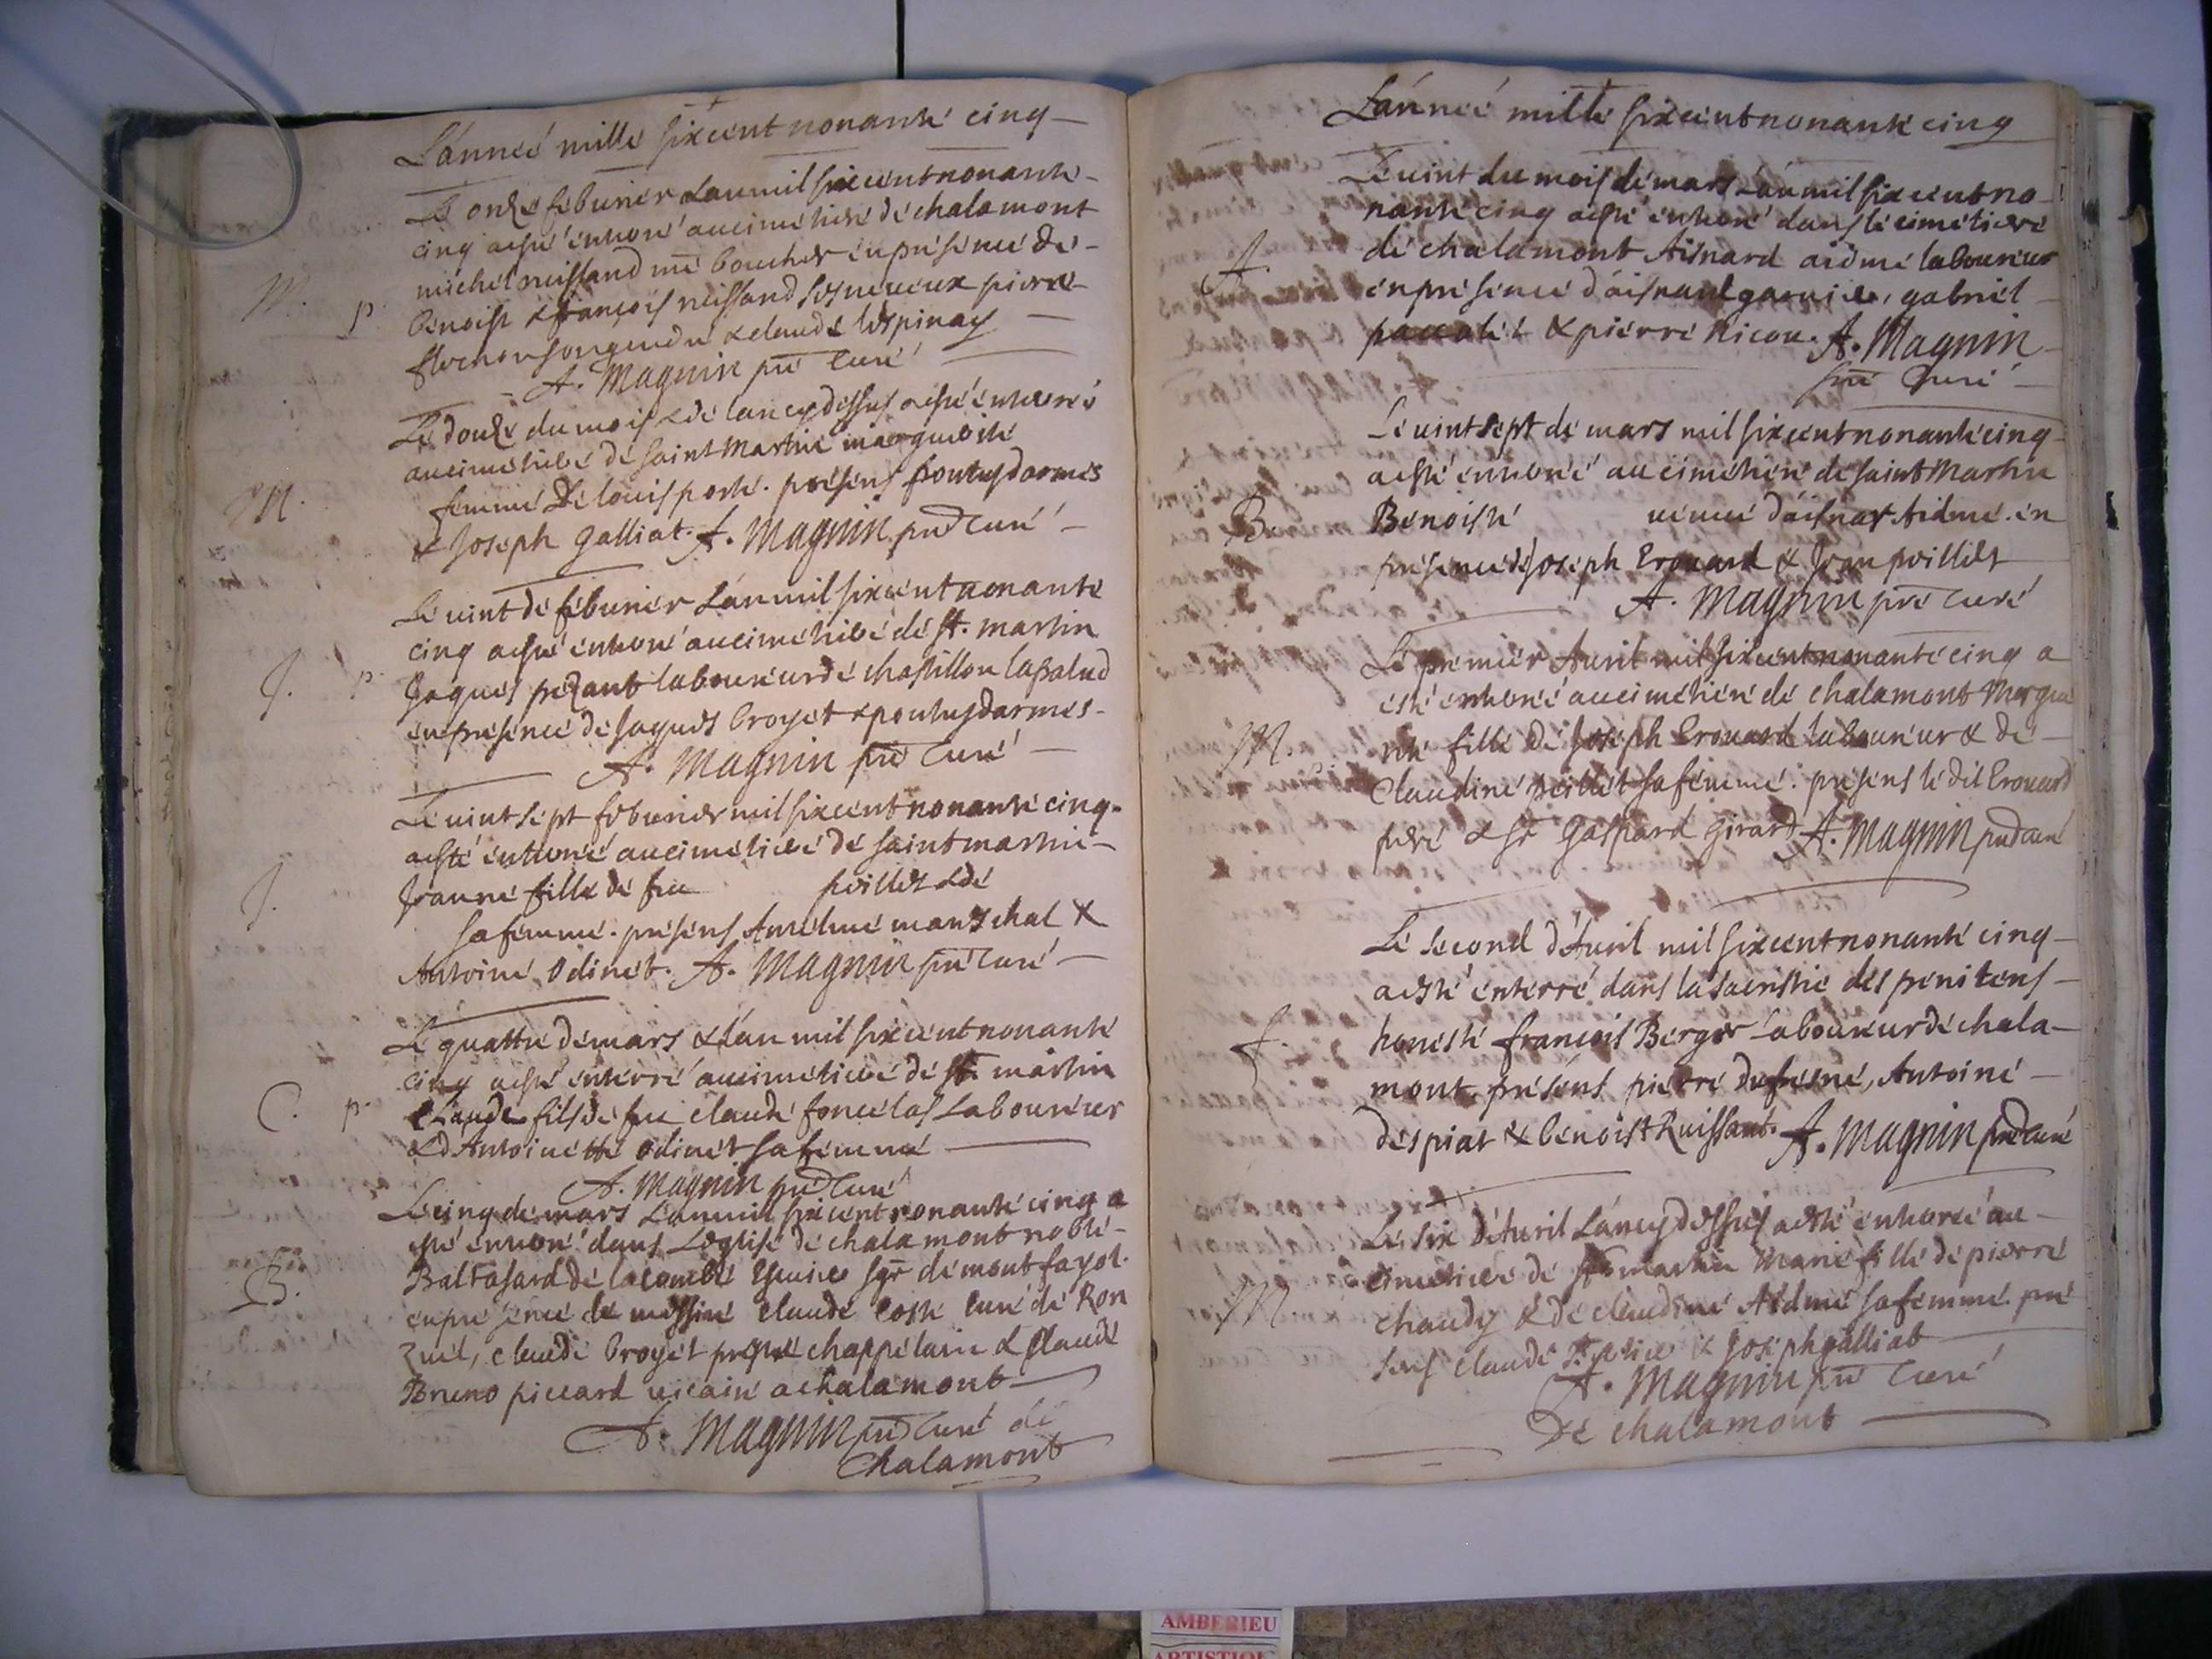 L'année mille sixcent nonante cinq
Le onze feburier l'an mil sixcent nonante
cinq a esté enterré au cimetiere de chalamont
michel neissand me boucher en presence de
M. p. benoist & françois neissand ses neveux pierre
son gendre & claude lespinay
A. Magnin pre curé
Le douze du mois & de l'an cy dessus a esté enterré
au cimetiere de saint Martin margueritte
M. femme de Louis porte. presens pontus darmes
& Joseph galliat. A. Magnin pre curé
Le vint de feburier l'an mil sixcent nonante
cinq a esté enterré au cimetiere de st. martin
J. p. Jaques pezant laboureur de chastillon lapalud
en presence de Jaques broyet & pontus darmes
A. Magnin pre curé
Le vint sept feburier mil sixcent nonante cinq
a esté enterré au cimetiere de saint martin
J. Jeanne fille de feu peillet & de
sa femme. presens Antelme mareschal &
Antoine Odinet. A. Magnin pre curé
Le quattre de mars & l'an mil sixcent nonante
cinq a esté enterré au cimetiere de st. martin
C. p. Claude fils de feu claude foncelas Laboureur
& d'Antoinette odinet sa femme
A. Magnin pre curé
Le cinq de mars L'an mil sixcent nonante cinq a
esté enterré dans L'eglise de chalamont noble
B. Baltasard de lacombe Escuier sgr de montfayol
en presence de messire claude coste curé de Ron
zuel, claude broyet prestre chappelain & claude
Bruno piccard vicaire a chalamont
A. Magnin pre curé de
Chalamont
L'année mille sixcent nonante cinq
Le vint du mois de mars L'an mil sixcent no
nante cinq a esté enterré dans le cimetiere
A. de chalamont Aisnard aidme laboureur
en presence d'aisnard garnier, gabriel
paccalet & pierre Ricou. A. Magnin
pre Curé
Le vint sept de mars mil sixcent nonante cinq
a esté enterré au cimetiere de saint Martin
B. Benoiste veuve d'aisnar Aidme. en
presence de Joseph Erouard & Jean peillet
A. Magnin pre curé
Le premier Auril mil sixcent nonante cinq a
esté enterré au cimetiere de chalamont Margue
M. rite fille de Joseph Erouard laboureur & de
Claudine peillet sa femme. presens le dit Erouard
pere & sr Gaspard Girard A. Magnin pre curé
Le second d'Auril mil sixcent nonante cinq
a esté enterré dans la sacristie des penitens
f. honeste françois Berger laboureur de chala
mont. presens pierre dufresne, Antoine
despiat & benoist Ruissant. A. Magnin pre curé
Le six d'Auril L'an cy dessus a esté enterré au
cimetiere de st martin Marie fille de pierre
M. chaudy & de claudine Aidme sa femme. pre
sens claude & Joseph galliat
A. Magnin pre Curé
De chalamont
AMBERIEU
ARTISTIQUE